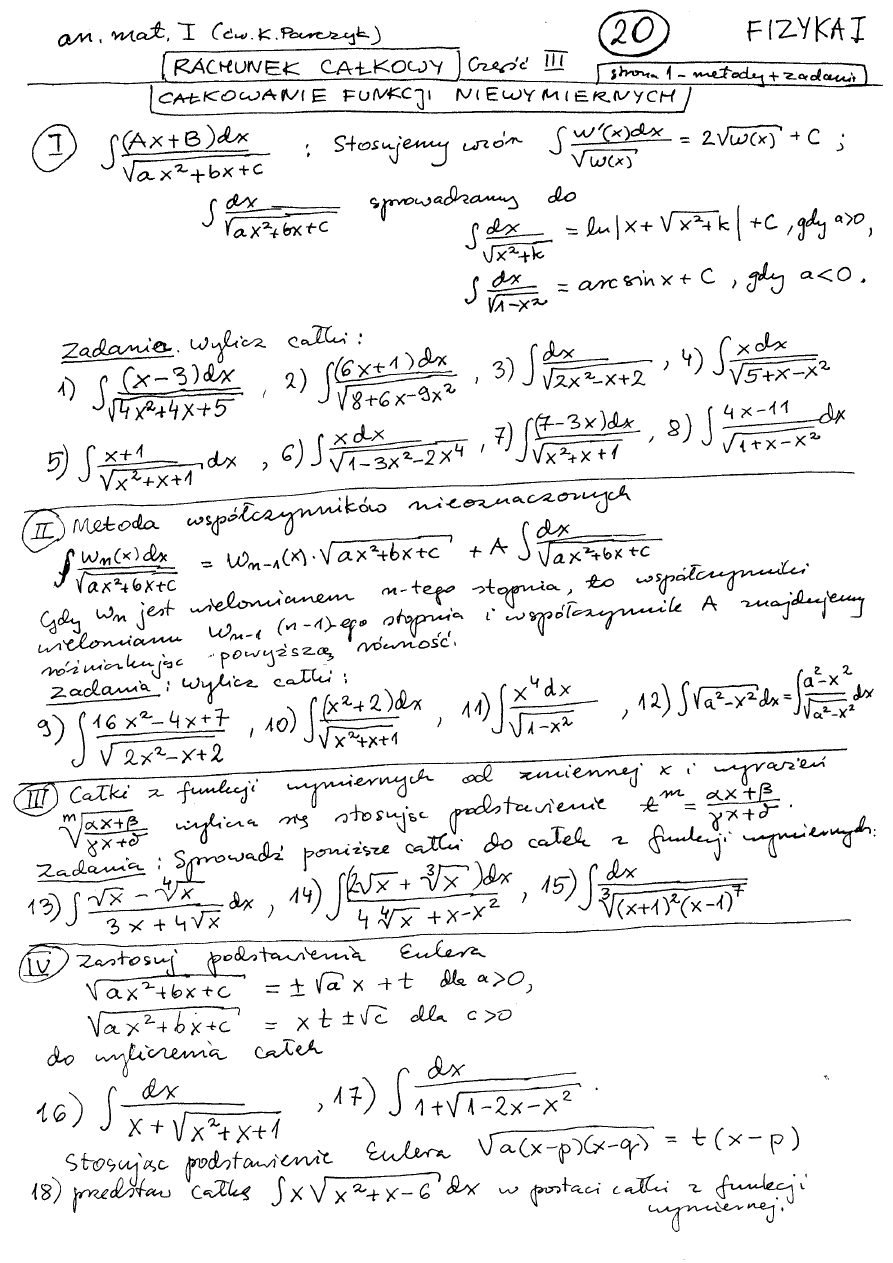 an. mat. I (ćw. K. Parczyk) 20 FIZYKA I
RACHUNEK CAŁKOWY Część III strona 1 - metody + zadania
CAŁKOWANIE FUNKCJI NIEWYMIERNYCH
I ∫ (Ax+B)dx / √(ax²+bx+c) : Stosujemy wzór ∫ w'(x)dx / √w(x) = 2√w(x) + C ;
∫ dx / √(ax²+bx+c) sprowadzamy do
∫ dx / √(x²+k) = ln|x+√(x²+k)| + C, gdy a>0,
∫ dx / √(1-x²) = arcsin x + C, gdy a<0.
Zadanie. Wylicz całki:
1) ∫ (x-3)dx / √(4x²+4x+5), 2) ∫ (6x+1)dx / √(8+6x-9x²), 3) ∫ dx / √(2x²-x+2), 4) ∫ xdx / √(5+x-x²)
5) ∫ (x+1) / √(x²+x+1) dx, 6) ∫ xdx / √(1-3x²-2x⁴), 7) ∫ (7-3x)dx / √(x²+x+1), 8) ∫ (4x-11) / √(1+x-x²) dx
II Metoda współczynników nieoznaczonych
∫ Wn(x)dx / √(ax²+bx+c) = Wn-1(x)·√(ax²+bx+c) + A ∫ dx / √(ax²+bx+c)
Gdy Wn jest wielomianem n-tego stopnia, to współczynniki
wielomianu Wn-1 (n-1)-ego stopnia i współczynnik A znajdujemy
różniczkując powyższą równość.
Zadania: Wylicz całki:
9) ∫ (16x²-4x+7) / √(2x²-x+2), 10) ∫ (x²+2)dx / √(x²+x+1), 11) ∫ x⁴dx / √(1-x²), 12) ∫ √(a²-x²) dx = ∫ (a²-x²) / √(a²-x²) dx
III Całki z funkcji wymiernych od zmiennej x i wyrażeń
ᵐ√((αx+β)/(γx+δ)) wylicza się stosując podstawienie tᵐ = (αx+β)/(γx+δ).
Zadania: Sprowadź poniższe całki do całek z funkcji wymiernych:
13) ∫ (√x - ⁴√x) / (3x+4√x) dx, 14) ∫ (2√x + ³√x)dx / (4 ⁴√x + x - x²), 15) ∫ dx / ³√((x+1)²(x-1)⁷)
IV Zastosuj podstawienia Eulera
√(ax²+bx+c) = ±√a x + t dla a>0,
√(ax²+bx+c) = xt ± √c dla c>0
do wyliczenia całek
16) ∫ dx / (x+√(x²+x+1)), 17) ∫ dx / (1+√(1-2x-x²)).
Stosując podstawienie Eulera √(a(x-p)(x-q)) = t(x-p)
18) przedstaw całkę ∫ x√(x²+x-6) dx w postaci całki z funkcji
wymiernej.